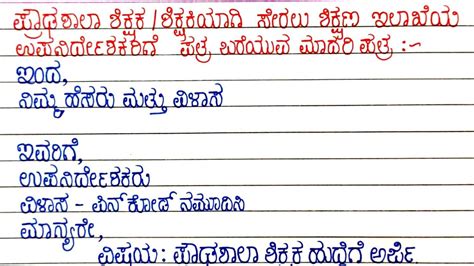 ಪ್ರೌಢಶಾಲಾ ಶಿಕ್ಷಕ/ಶಿಕ್ಷಕಿಯಾಗಿ ಸೇರಲು ಶಿಕ್ಷಣ ಇಲಾಖೆಯ
ಉಪನಿರ್ದೇಶಕರಿಗೆ ಪತ್ರ ಬರೆಯುವ ಮಾದರಿ ಪತ್ರ :-
ಇಂದ,
ನಿಮ್ಮ ಹೆಸರು ಮತ್ತು ವಿಳಾಸ
ಇವರಿಗೆ,
ಉಪನಿರ್ದೇಶಕರು
ವಿಳಾಸ - ಪಿನ್‌ಕೋಡ್ ನಮೂದಿಸಿ
ಮಾನ್ಯರೇ,
ವಿಷಯ : ಪ್ರೌಢಶಾಲಾ ಶಿಕ್ಷಕ ಹುದ್ದೆಗೆ ಅರ್ಜಿ